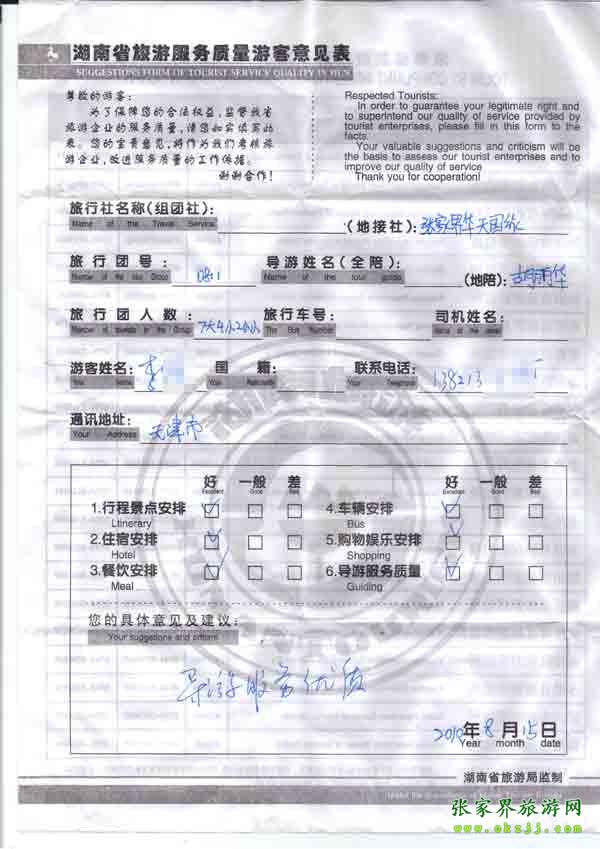 湖南省旅游服务质量游客意见表
SUGGESTIONS FORM OF TOURIST SERVICE QUALITY IN HUN
尊敬的游客:
为了保障您的合法权益,监督我省
旅游企业的服务质量,请您如实填写此
表。您的宝贵意见,将作为我们考核旅
游企业,改进服务质量的工作依据。
谢谢合作!
Respected Tourists:
In order to guarantee your legitimate right and
to superintend our quality of service provided by
tourist enterprises, please fill in this form to the
facts.
Your valuable suggestions and criticism will be
the basis to assess our tourist enterprises and to
improve our quality of service
Thank you for cooperation!
旅行社名称(组团社): (地接社): 张家界华天国旅
Name of the Travel Service
旅行团号: 08:1 导游姓名(全陪): (地陪): 胡丽华
Name of the tour Group Name of the tour guide
旅行团人数: 7大4小 旅行车号: 司机姓名:
Number of tourists in the Group The Bus Number Name of the driver
游客姓名: 李 国籍: 联系电话: 138213
Your Name Your Nationality Your Telephone
通讯地址: 天津市
Your Address
好 一般 差 好 一般 差
Excellent Good Bad Excellent Good Bad
1.行程景点安排 4.车辆安排
Ltinerary Bus
2.住宿安排 5.购物娱乐安排
Hotel Shopping
3.餐饮安排 6.导游服务质量
Meal Guiding
您的具体意见及建议:
Your suggestions and critism
导游服务优质
2010年8月15日
Year month date
湖南省旅游局监制
张家界旅游网
www.okzjj.com